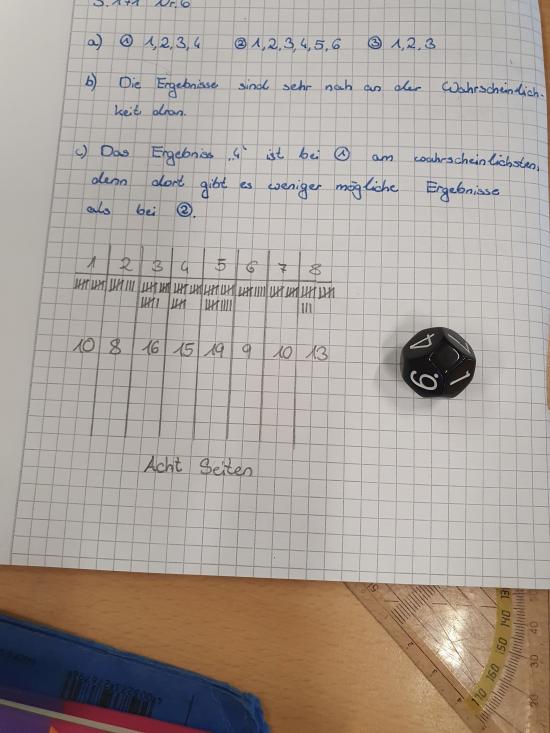 S. 171 Nr. 6
a) ① 1, 2, 3, 4 ② 1, 2, 3, 4, 5, 6 ③ 1, 2, 3
b) Die Ergebnisse sind sehr nah an der Wahrscheinlich-
keit dran.
c) Das Ergebniss „4“ ist bei ① am wahrscheinlichsten,
denn dort gibt es weniger mögliche Ergebnisse
als bei ②.
1 2 3 4 5 6 7 8
10 8 16 15 19 9 10 13
Acht Seiten
4
1
6
110 150 160 150 140 130
20 30 40